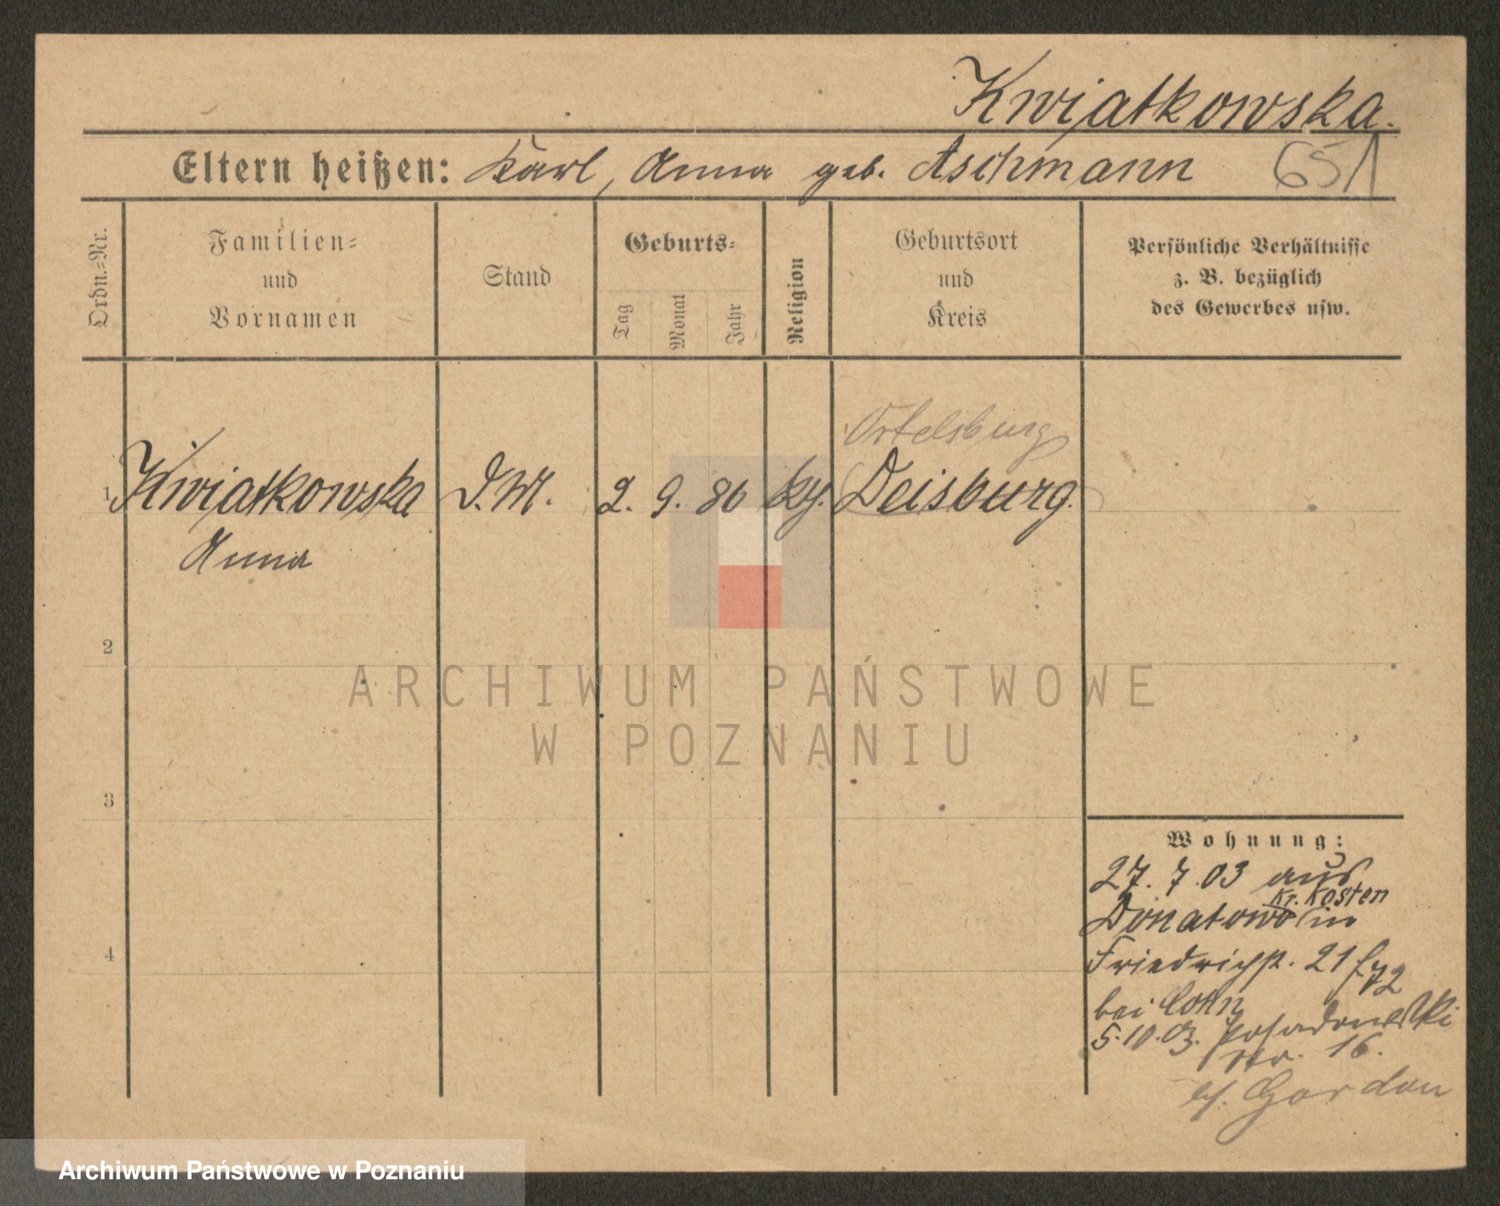 Kwiatkowska.
Eltern heißen: Karl, Anna geb. Aschmann 651
Ordn.=Nr.
Familien=
und
Vornamen
Stand
Geburts=
Tag
Monat
Jahr
Religion
Geburtsort
und
Kreis
Persönliche Verhältnisse
z. B. bezüglich
des Gewerbes usw.
Ortelsburg
1 Kwiatkowska D.M. 2. 9. 86 Deisburg.
Anna
2
3
4
ARCHIWUM PAŃSTWOWE
W POZNANIU
Wohnung:
27. 7. 03 aus
Kr. Kosten
Donatowo in
Friedrichst. 21
bei Cohn
5.10.03. Posadowski
str. 16.
bei Gordon
Archiwum Państwowe w Poznaniu